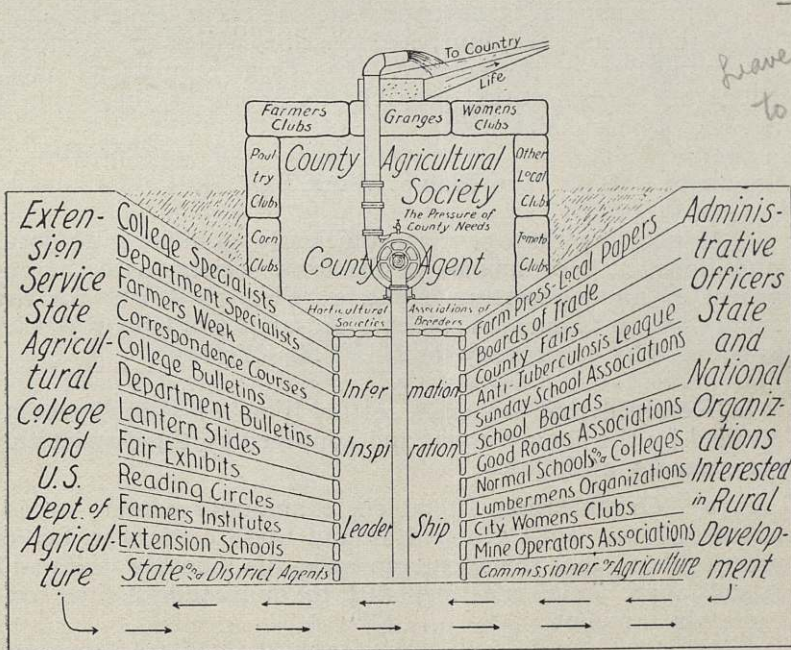 To Country
Life
Leave
to
Farmers
Clubs
Granges
Womens
Clubs
Poul
try
Clubs
County Agricultural
Society
The Pressure of
County Needs
Other
Local
Clubs
Corn
Clubs
County Agent
Tomato
Clubs
Horticultural
Societies
Associations of
Breeders
Exten-
sion
Service
State
Agricul-
tural
College
and
U.S.
Dept. of
Agricul-
ture
College Specialists
Department Specialists
Farmers Week
Correspondence Courses
College Bulletins
Department Bulletins
Lantern Slides
Fair Exhibits
Reading Circles
Farmers Institutes
Extension Schools
State and District Agents
Infor mation
Inspi ration
Leader Ship
Farm Press-Local Papers
Boards of Trade
County Fairs
Anti-Tuberculosis League
Sunday School Associations
School Boards
Good Roads Associations
Normal Schools and Colleges
Lumbermens Organizations
City Womens Clubs
Mine Operators Associations
Commissioner of Agriculture
Adminis-
trative
Officers
State
and
National
Organiz-
ations
Interested
in Rural
Develop-
ment